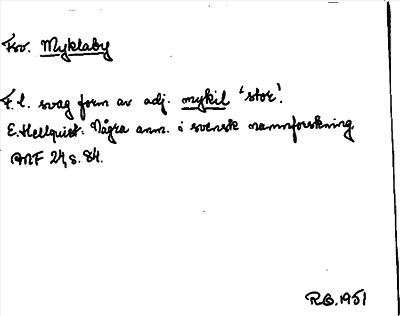 Fsv. Myklaby
F.l. svag form av adj. mykil 'stor'.
E. Hellquist: Några anm. i svensk namnforskning
ANF 24, s. 84.
R.G. 1951